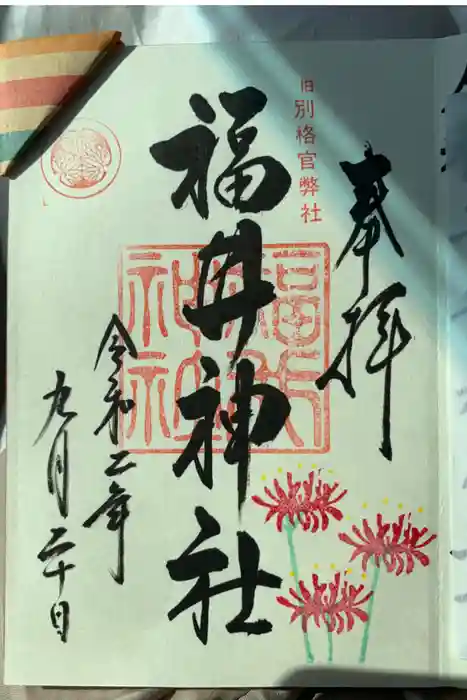 奉拝
旧別格官弊社
福井神社
令和二年
九月二十日